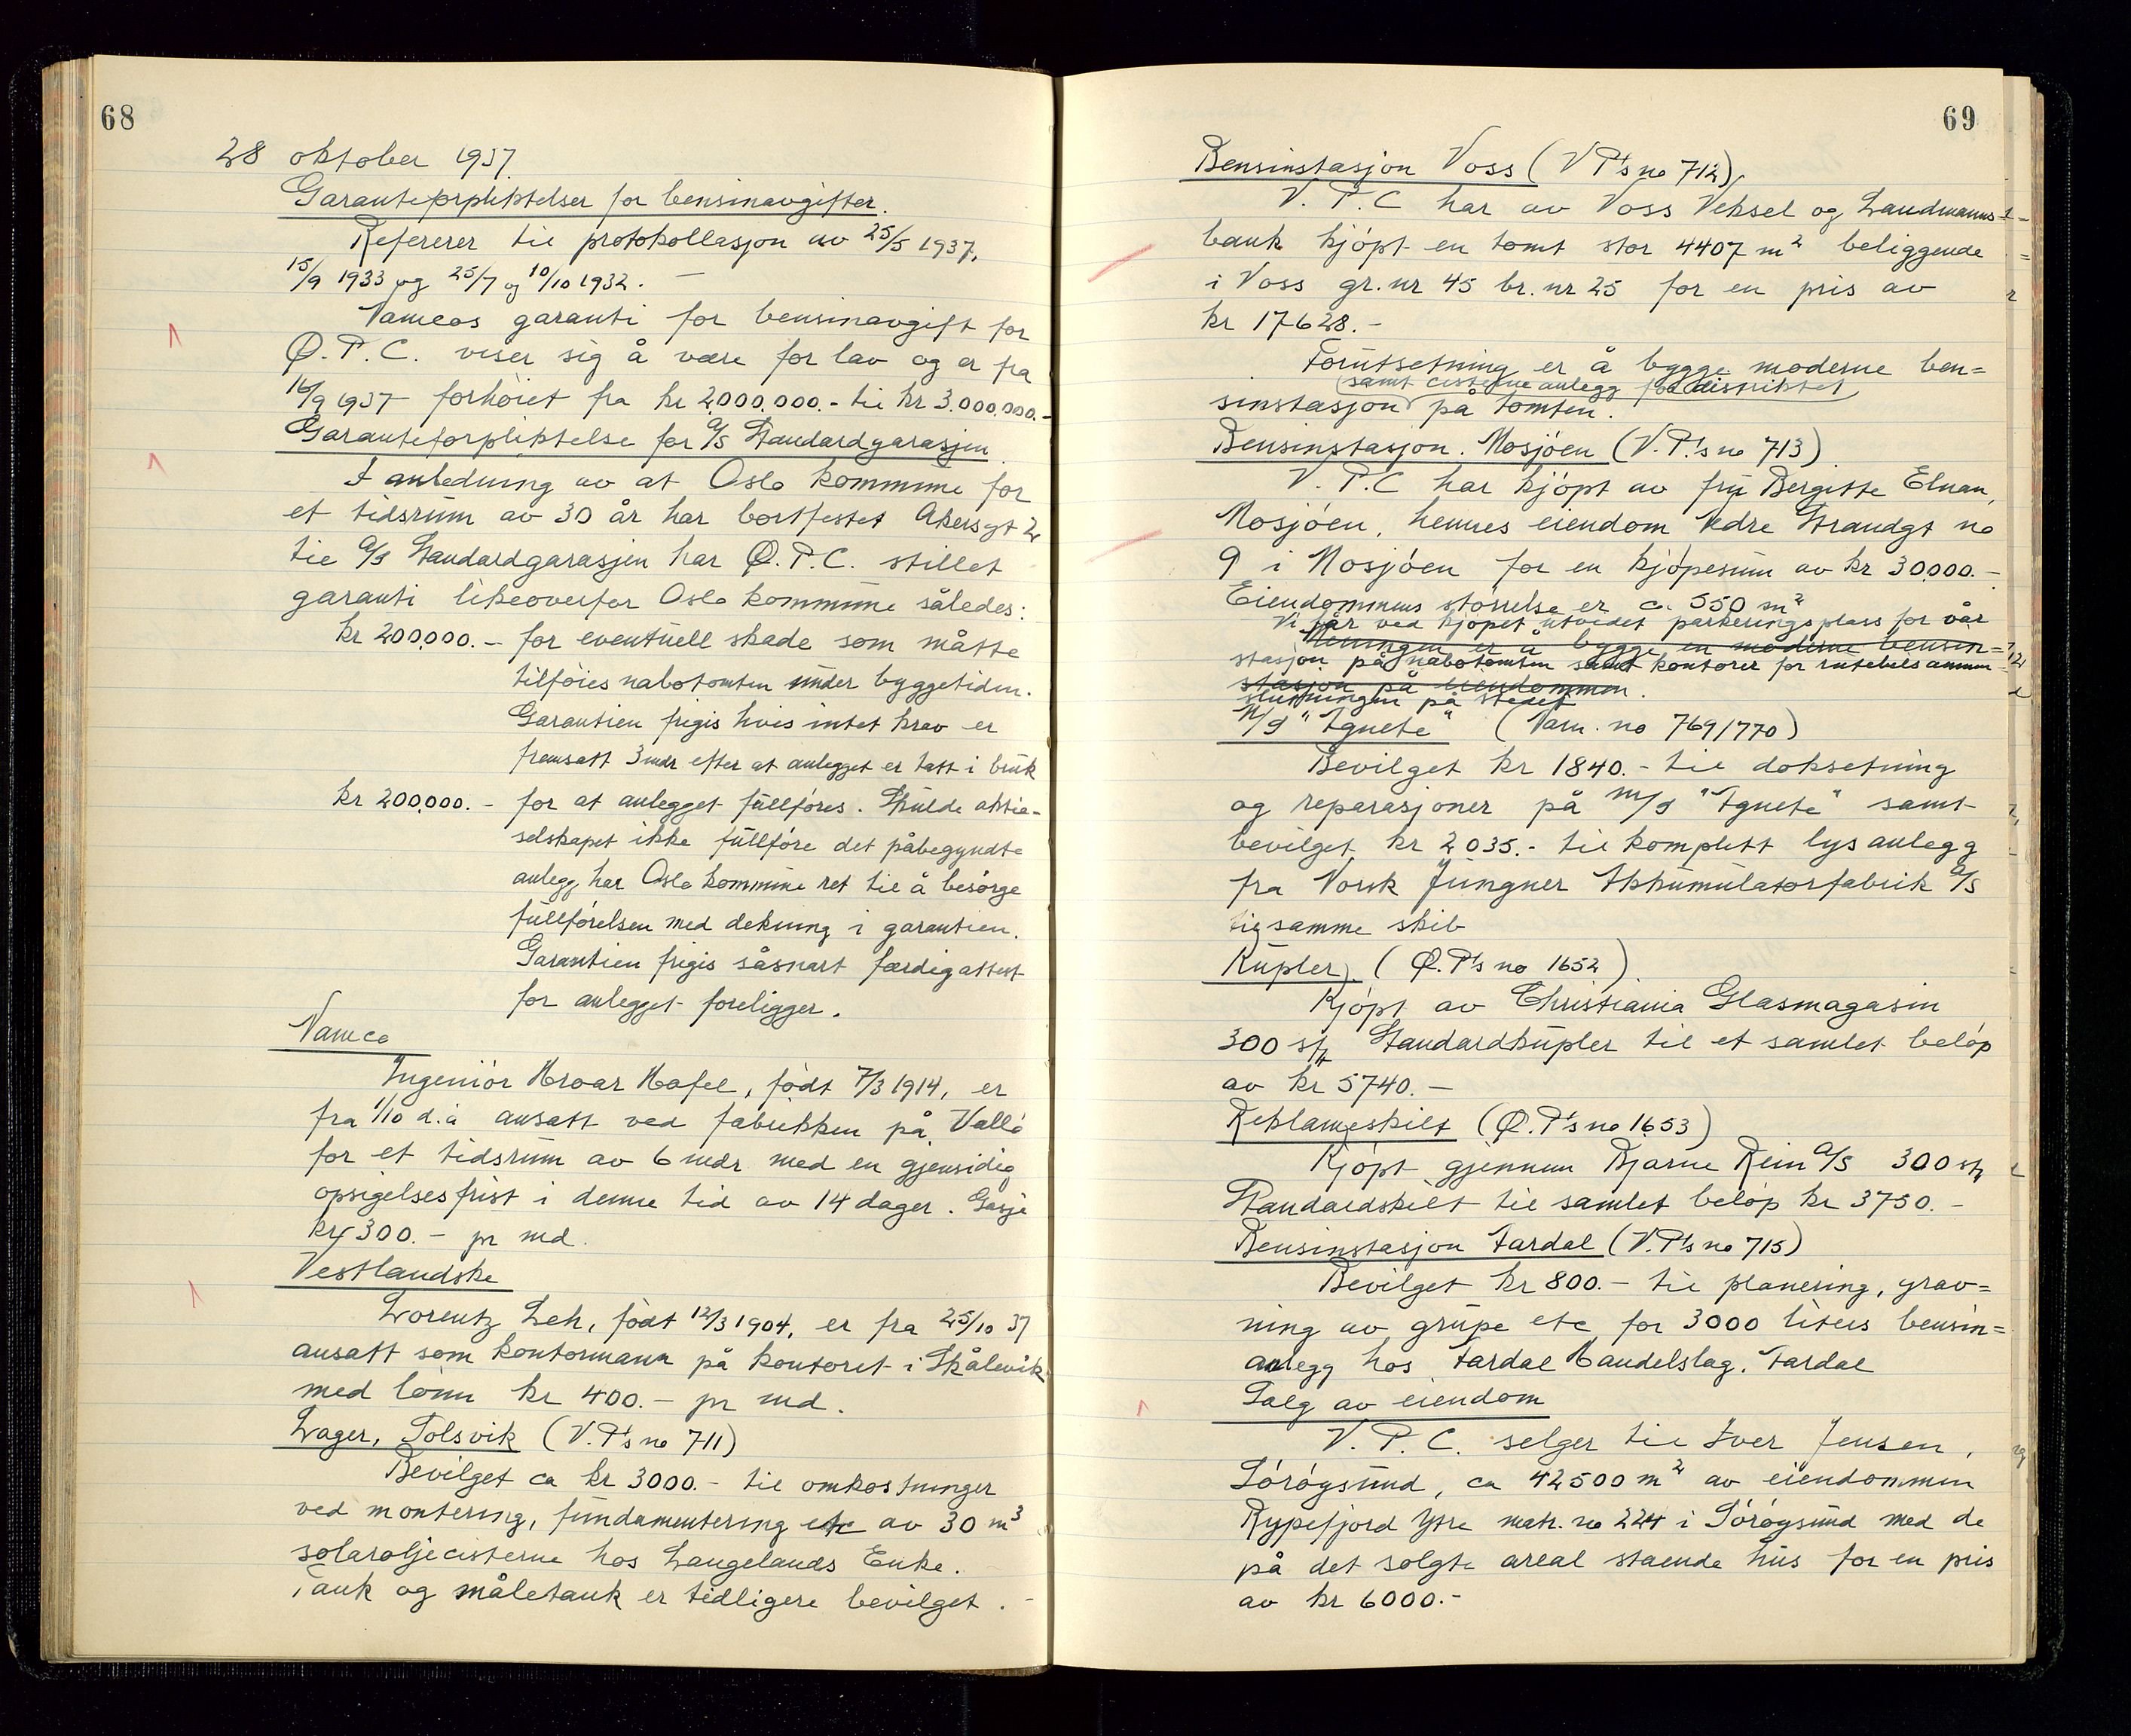 68
28 oktober 1937.
Garanteforpliktelser for bensinavgifter.
Refererer til protokollasjon av 25/5 1937,
15/9 1933 og 25/7 og 10/10 1932. —
Vamcos garanti for bensinavgift for
Ø.P.C. viser sig å være for lav og er fra
16/9 1937 forhøiet fra kr 2.000.000.- til kr 3.000.000.-
Garanteforpliktelse for A/S Standardgarasjen
I anledning av at Oslo kommune for
et tidsrum av 30 år har bortfestet Akersgt 2
til A/S Standardgarasjen har Ø.P.C. stillet
garanti likeoverfor Oslo kommune således:
kr 200.000.- for eventuell skade som måtte
tilføies nabotomten under byggetiden.
Garantien frigis hvis intet krav er
fremsatt 3 mdr efter at anlegget er tatt i bruk
kr 200.000.- for at anlegget fullføres. Skulde aktie-
selskapet ikke fullføre det påbegyndte
anlegg har Oslo kommune ret til å besørge
fullførelsen med dekning i garantien.
Garantien frigis såsnart færdigattest
for anlegget foreligger.
Vamco
Ingeniør Hroar Hafel, født 7/3 1914, er
fra 1/10 d.å ansatt ved fabrikken på Vallø
for et tidsrum av 6 mdr med en gjensidig
opsigelsesfrist i denne tid av 14 dager. Gasje
kr 300.- pr md.
Vestlandske
Lorentz Leh, født 12/3 1904, er fra 25/10 37
ansatt som kontormann på kontoret i Skålevik
med lønn kr 400.- pr md.
Lager, Solsvik (V.P's no 711)
Bevilget ca kr 3000.- til omkostninger
ved montering, fundamentering etc av 30 m³
solaroljecisterne hos Langelands Enke.
Tank og måletank er tidligere bevilget.-
69
Bensinstasjon Voss (V P's no 712)
V.P.C har av Voss Veksel og Landmanns-
bank kjøpt en tomt stor 4407 m² beliggende
i Voss gr.nr 45 br.nr 25 for en pris av
kr 17628.-
Forutsetning er å bygge moderne ben=
(samt cisterneanlegg for distriktet)
sinstasjon på tomten.
Bensinstasjon. Mosjøen (V.P.'s no 713)
V.P.C har kjøpt av fru Bergitte Elnan,
Mosjøen, hennes eiendom Nedre Strandgt no
9 i Mosjøen for en kjøpesum av kr 30.000.-
Eiendommens størrelse er ca. 550 m²
Vi får ved kjøpet utvidet parkeringsplass for vår
Meningen er å bygge en moderne bensin=
stasjon på nabotomten samt kontorer for rutebilsammen-
stasjon på eiendommen.
slutningen på stedet
M/S "Agnete" (Vam. no 769/770)
Bevilget kr 1840.- til doksetning
og reparasjoner på M/S "Agnete" samt
bevilget kr 2035.- til komplett lysanlegg
fra Norsk Jungner Akkumulatorfabrik A/S
til samme skib
Kupler. (Ø.P's no 1652).
Kjøpt av Christiania Glasmagasin
300 stk Standardkupler til et samlet beløp
av kr 5740.—
Reklameskilt (Ø.P's no 1653)
Kjøpt gjennem Bjarne Rein A/S 300 stk
Standardskilt til samlet beløp kr 3750.-
Bensinstasjon Fardal (V.P's no 715)
Bevilget kr 800.- til planering, grav=
ning av grupe etc for 3000 liters bensin=
anlegg hos Fardal Handelslag, Fardal
Salg av eiendom
V.P.C. selger til Iver Jensen,
Sørøysund, ca 42500 m² av eiendommen
Rypefjord Ytre matr. no 224 i Sørøysund med de
på det solgte areal stående hus for en pris
av kr 6000.-